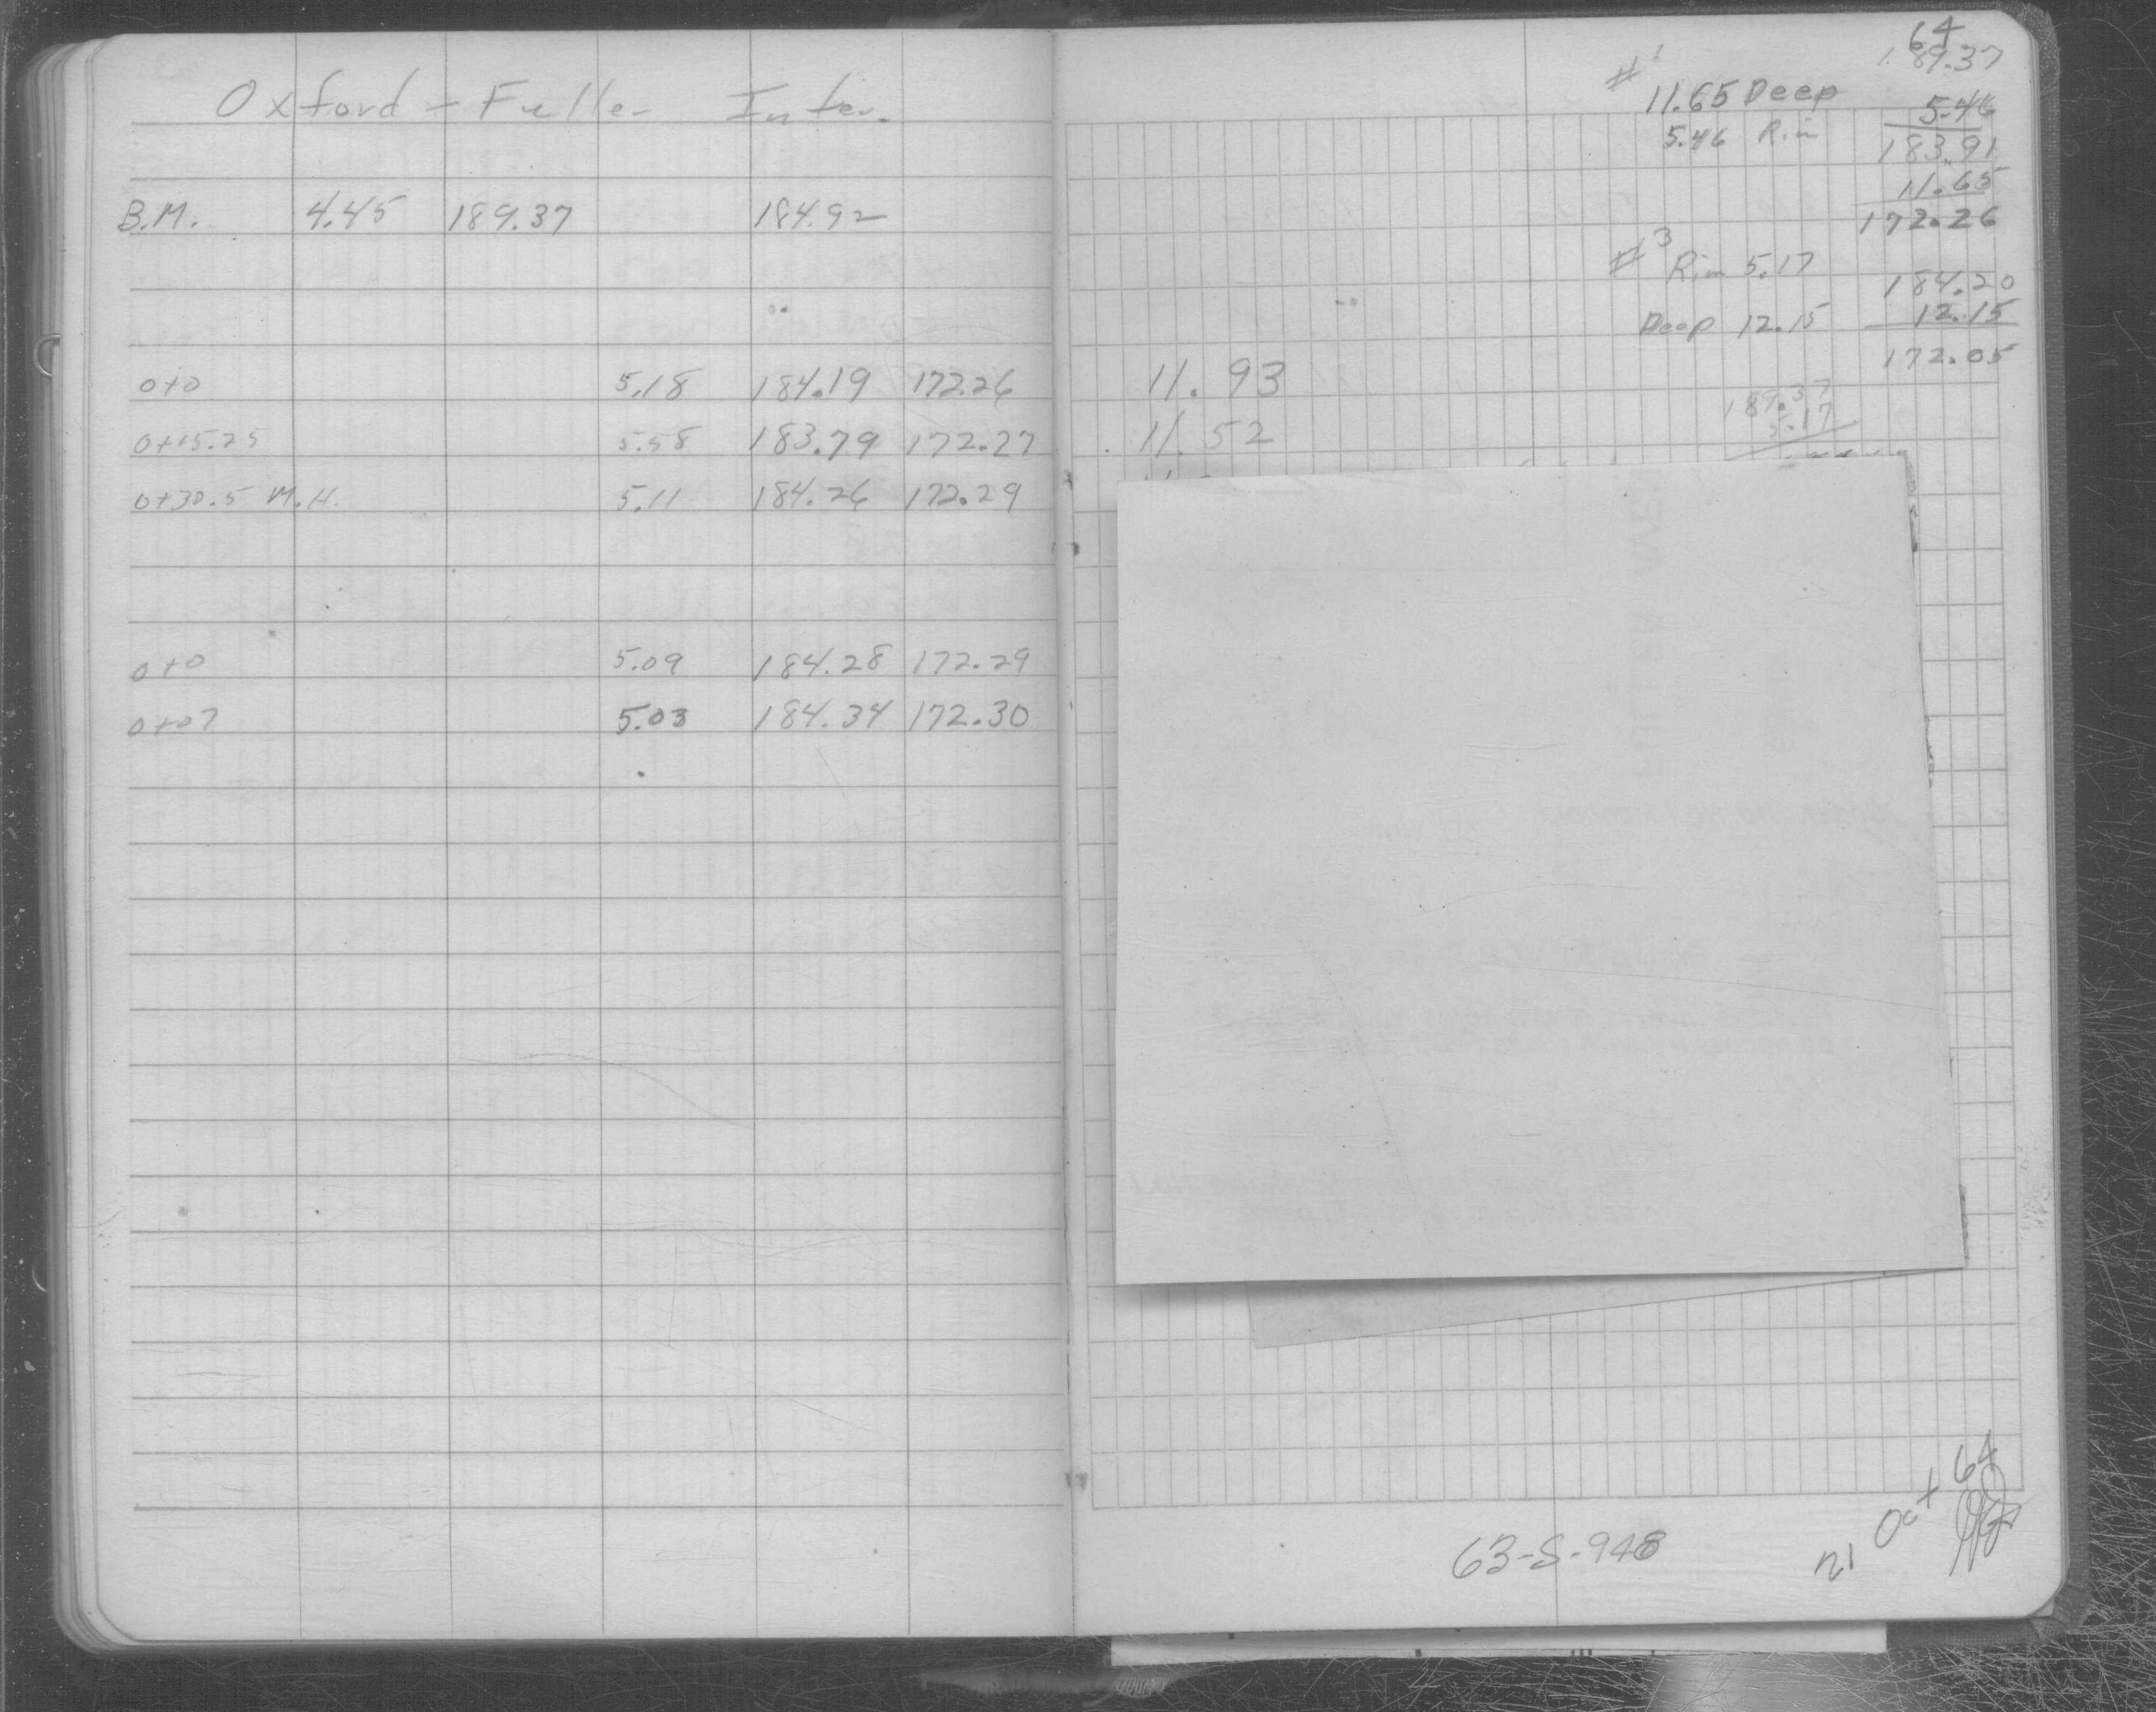 Oxford - Fuller Inter.
B.M. 4.45 189.37 184.92
0+0 5.18 184.19 172.26
0+15.25 5.58 183.79 172.27
0+30.5 M.H. 5.11 184.26 172.29
0+0 5.09 184.28 172.29
0+07 5.03 184.34 172.30
64
#1 189.37
11.65 Deep 5.46
5.46 Rim 183.91
11.65
172.26
#3 Rim 5.17 184.20
Deep 12.15 12.15
172.05
11.93 189.37
11.52 5.17
64
63-S-948